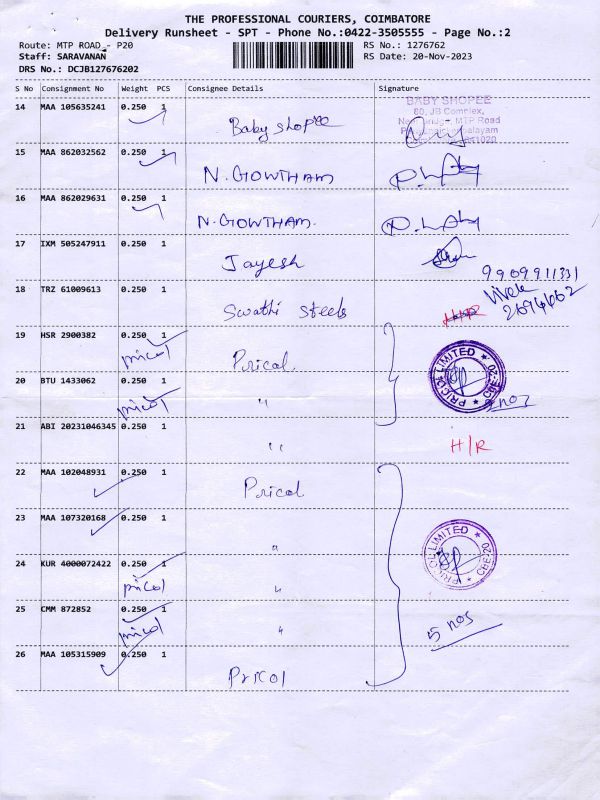 THE PROFESSIONAL COURIERS, COIMBATORE
Delivery Runsheet - SPT - Phone No.:0422-3505555 - Page No.:2
Route: MTP ROAD - P20 RS No.: 1276762
Staff: SARAVANAN RS Date: 20-Nov-2023
DRS No.: DCJB127676202
S No Consignment No Weight PCS Consignee Details Signature
14 MAA 105635241 0.250 1 Baby shopee BABY SHOPEE
80, JB Complex,
MTP Road
641020
15 MAA 862032562 0.250 1 N. GOWTHAM
16 MAA 862029631 0.250 1 N. GOWTHAM.
17 IXM 505247911 0.250 1 Jayesh
9909911331
18 TRZ 61009613 0.250 1 Swathi steels H/R Vivek
2694662
19 HSR 2900382 0.250 1 Prical PRICOL LIMITED ★ CBE-20 ★
pricol
20 BTU 1433062 0.250 1 " nos
pricol
21 ABI 20231046345 0.250 1 " H/R
22 MAA 102048931 0.250 1 Prical
23 MAA 107320168 0.250 1 " PRICOL LIMITED ★ CBE-20 ★
24 KUR 4000072422 0.250 1 "
pricol
25 CMM 872852 0.250 1 " 5 nos
pricol
26 MAA 105315909 0.250 1 Pricol